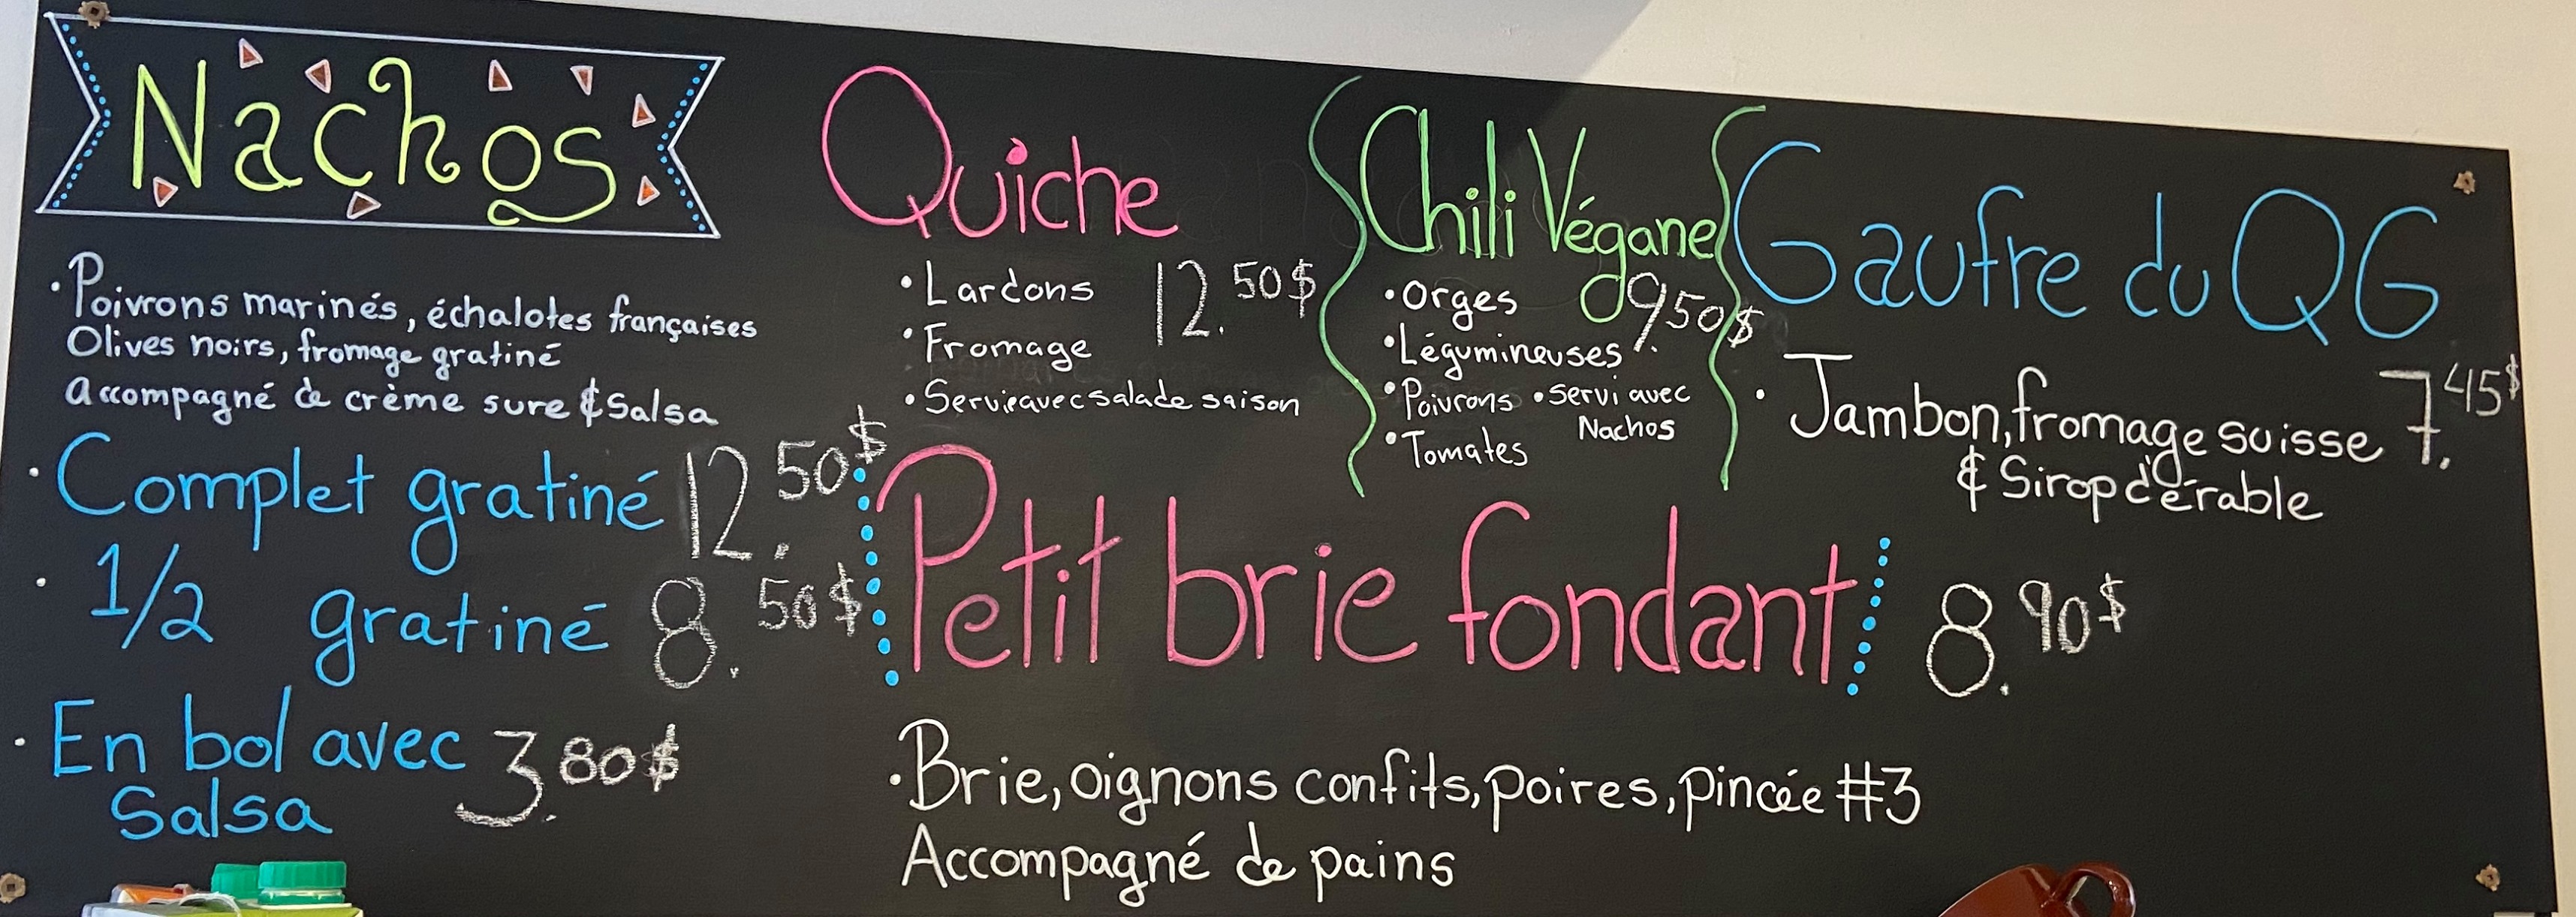 Nachos
• Poivrons marinés, échalotes françaises
Olives noirs, fromage gratiné
Accompagné de crème sure & Salsa
• Complet gratiné 12.50$
• 1/2 gratiné 8.50$
• En bol avec 3.80$
Salsa
Quiche
• Lardons 12.50$
• Fromage
• Servie avec salade saison
Chili Végane
• Orges 9.50$
• Légumineuses
• Poivrons • servi avec
Nachos
• Tomates
Gaufre du QG
• Jambon, fromage suisse 7.45$
& Sirop d'érable
Petit brie fondant 8.90$
• Brie, oignons confits, poires, pincée #3
Accompagné de pains